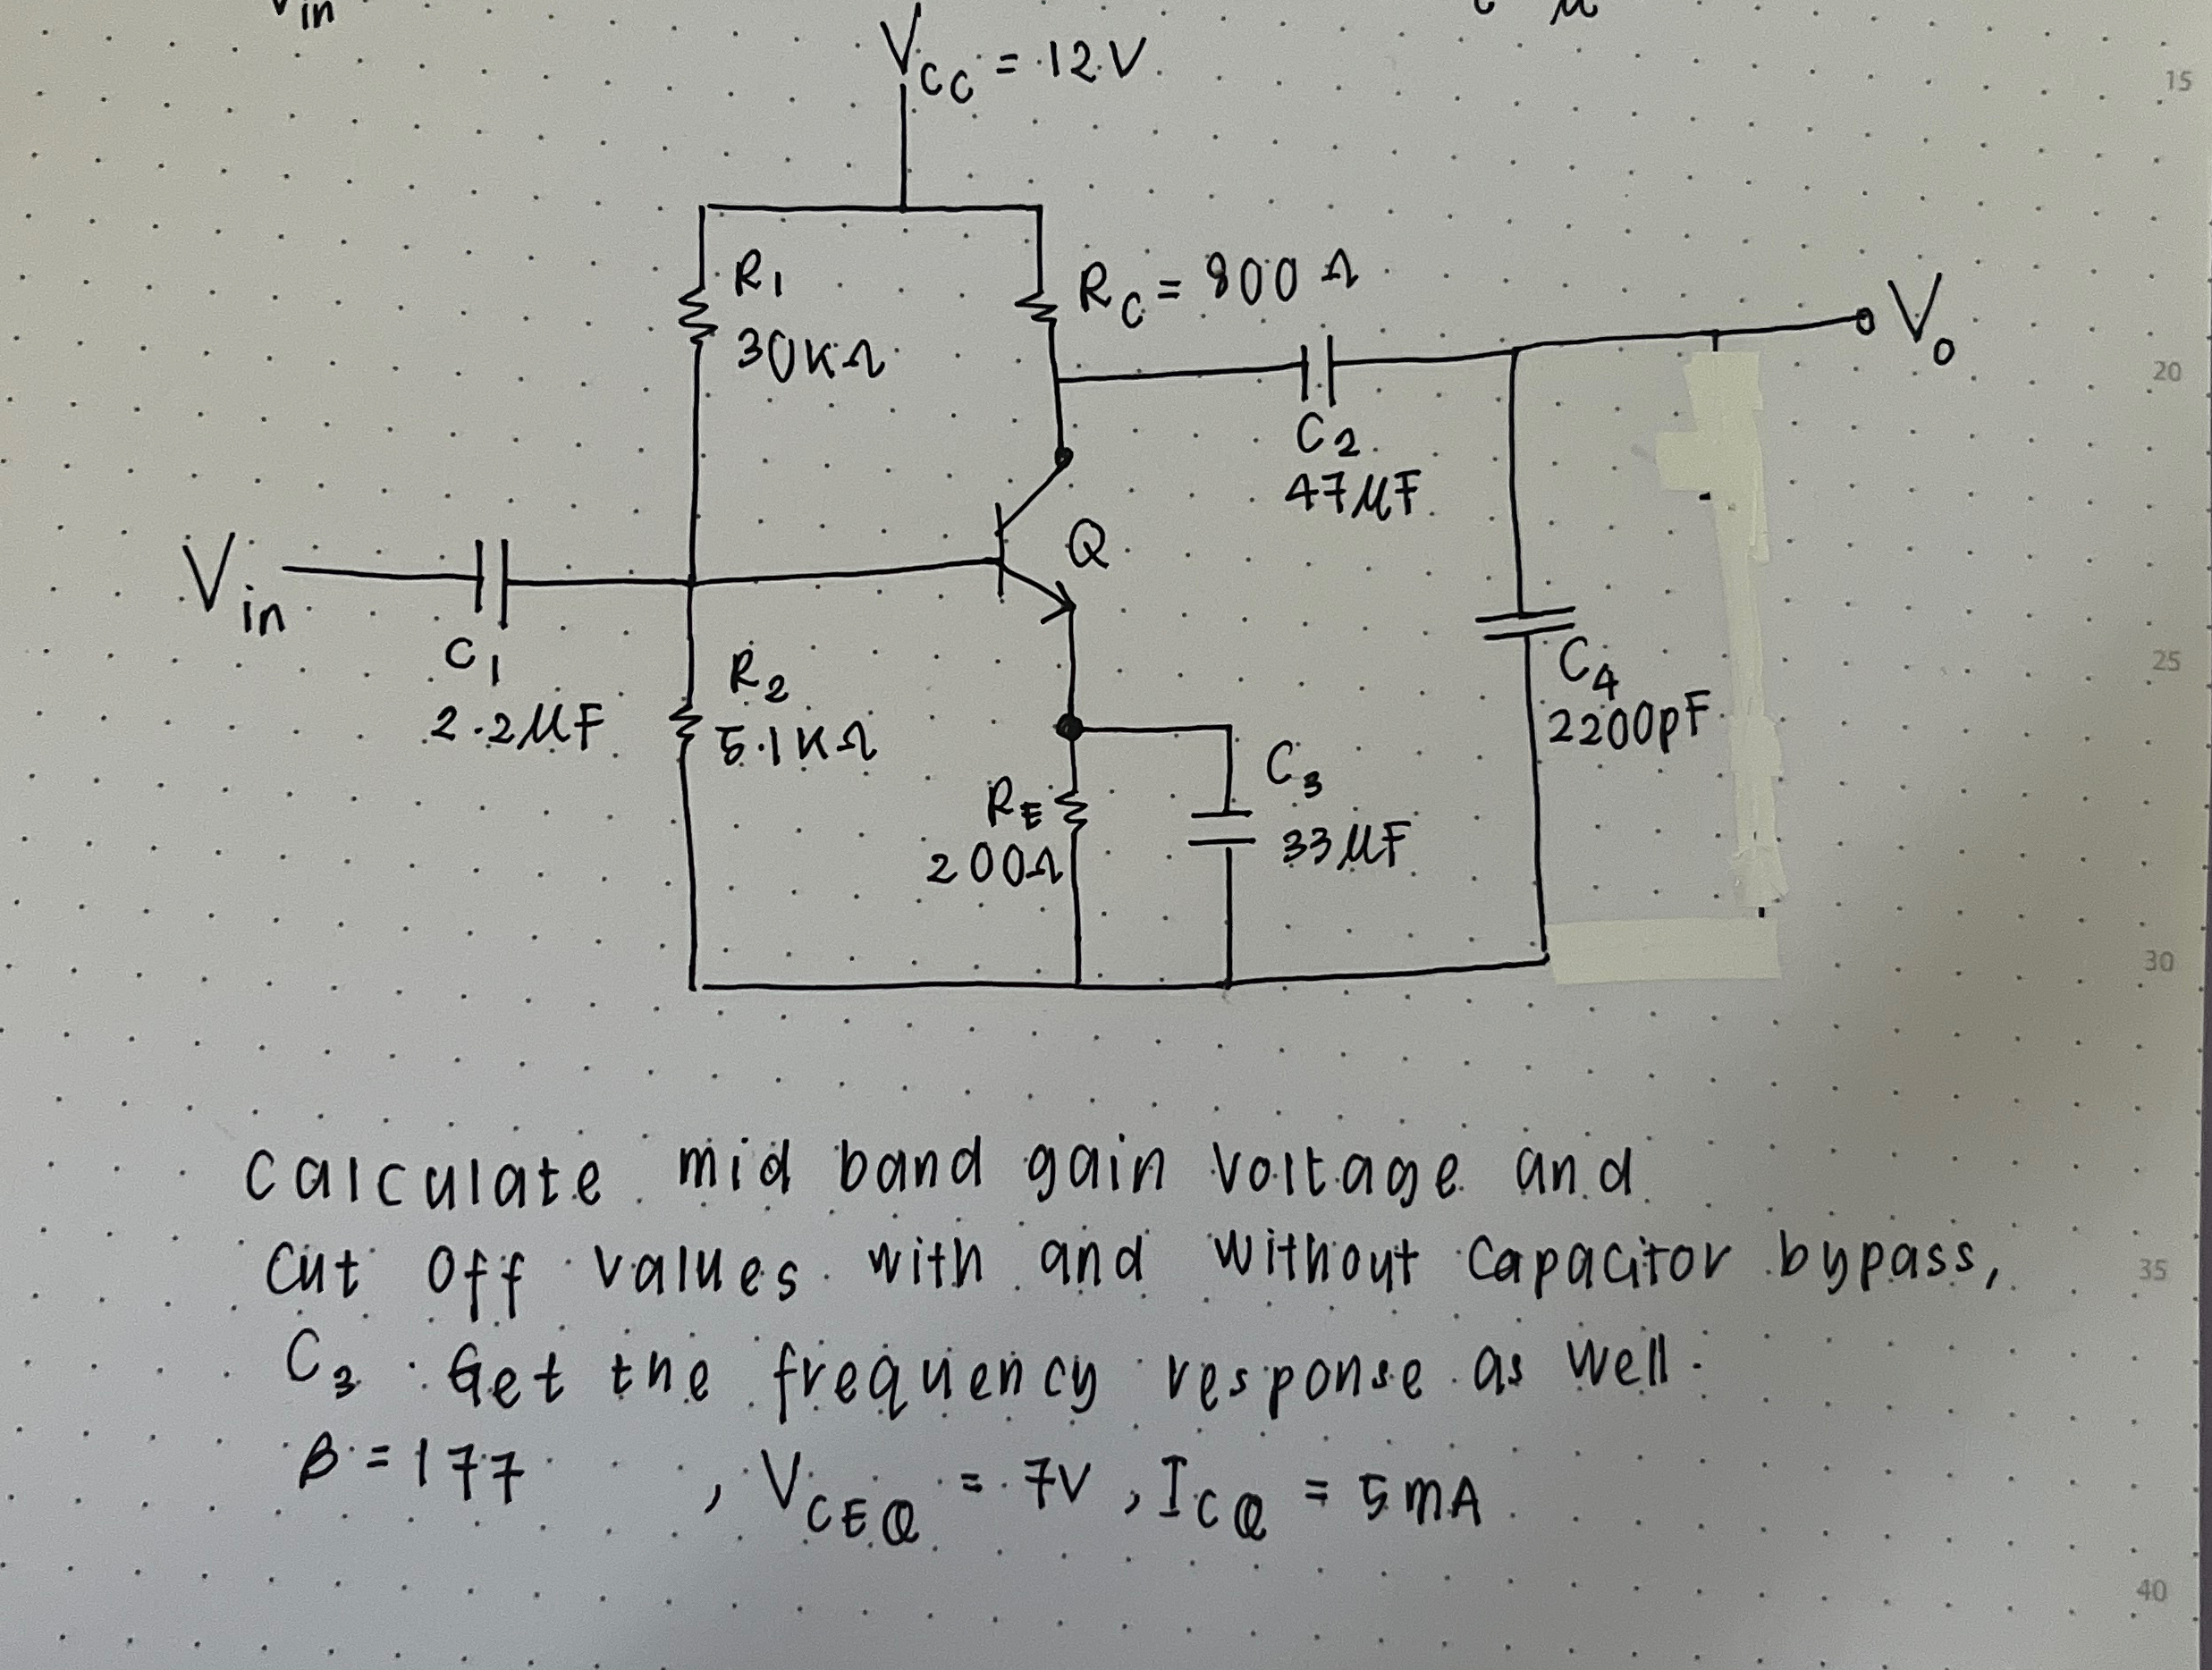 Vin
VCC = 12V
15
R1
30KΩ
RC = 800 Ω
Vo
20
C2
47µF
Q
Vin
C1
2.2µF
R2
5.1KΩ
C4
2200pF
25
RE
200Ω
C3
33µF
30
Calculate mid band gain voltage and
Cut Off values with and without Capacitor bypass,
35
C3. Get the frequency response as well.
β = 177 , VCEQ = 7V, ICQ = 5mA
40